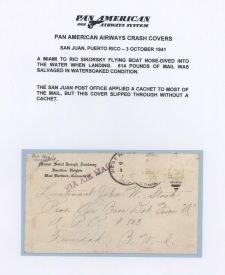 PAN AMERICAN
AIRWAYS SYSTEM
PAN AMERICAN AIRWAYS CRASH COVERS
SAN JUAN, PUERTO RICO – 3 OCTOBER 1941
A MIAMI TO RIO SIKORSKY FLYING BOAT NOSE-DIVED INTO
THE WATER WHEN LANDING. 614 POUNDS OF MAIL WAS
SALVAGED IN WATERSOAKED CONDITION.
THE SAN JUAN POST OFFICE APPLIED A CACHET TO MOST OF
THE MAIL, BUT THIS COVER SLIPPED THROUGH WITHOUT A
CACHET.
Mount Saint Joseph Academy
Hamilton Heights
West Hartford, Connecticut
VIA AIR MAIL
Lieutenant John W.
A. P. O. # 803
Trinidad B. W. I.